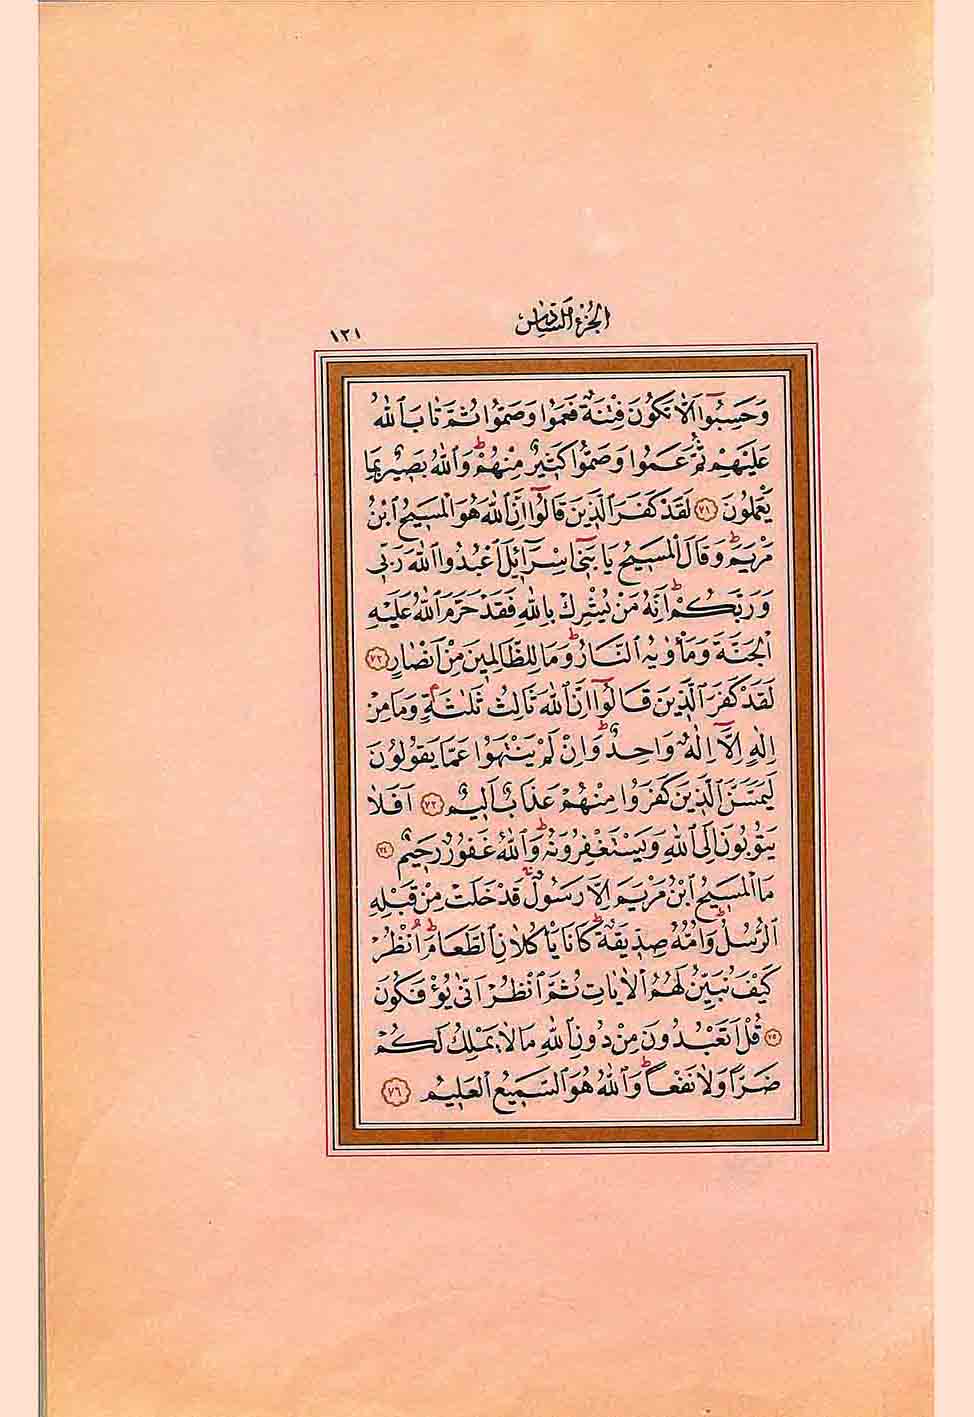 الجزء السادس
١٢١
وَحَسِبُوٓا اَلَّا تَكُونَ فِتْنَةٌ فَعَمُوا وَصَمُّوا ثُمَّ تَابَ اللّٰهُ
عَلَيْهِمْ ثُمَّ عَمُوا وَصَمُّوا كَثِيرٌ مِنْهُمْ ط وَاللّٰهُ بَصِيرٌ بِمَا
يَعْمَلُونَ ٧١ لَقَدْ كَفَرَ الَّذِينَ قَالُوٓا اِنَّ اللّٰهَ هُوَ الْمَسِيحُ ابْنُ
مَرْيَمَ ط وَقَالَ الْمَسِيحُ يَا بَنِىٓ اِسْرَٓائِلَ اعْبُدُوا اللّٰهَ رَبِّى
وَرَبَّكُمْ ط اِنَّهُ مَنْ يُشْرِكْ بِاللّٰهِ فَقَدْ حَرَّمَ اللّٰهُ عَلَيْهِ
الْجَنَّةَ وَمَأْوٰيهُ النَّارُ ط وَمَا لِلظَّالِمِينَ مِنْ اَنْصَارٍ ٧٢
لَقَدْ كَفَرَ الَّذِينَ قَالُوٓا اِنَّ اللّٰهَ ثَالِثُ ثَلٰثَةٍ م وَمَا مِنْ
اِلٰهٍ اِلَّٓا اِلٰهٌ وَاحِدٌ ط وَاِنْ لَمْ يَنْتَهُوا عَمَّا يَقُولُونَ
لَيَمَسَّنَّ الَّذِينَ كَفَرُوا مِنْهُمْ عَذَابٌ اَلِيمٌ ٧٣ اَفَلَا
يَتُوبُونَ اِلَى اللّٰهِ وَيَسْتَغْفِرُونَهُ ط وَاللّٰهُ غَفُورٌ رَحِيمٌ ٧٤
مَا الْمَسِيحُ ابْنُ مَرْيَمَ اِلَّا رَسُولٌ ج قَدْ خَلَتْ مِنْ قَبْلِهِ
الرُّسُلُ ط وَاُمُّهُ صِدِّيقَةٌ ط كَانَا يَأْكُلَانِ الطَّعَامَ ط اُنْظُرْ
كَيْفَ نُبَيِّنُ لَهُمُ الْاٰيَاتِ ثُمَّ انْظُرْ اَنّٰى يُؤْفَكُونَ
٧٥ قُلْ اَتَعْبُدُونَ مِنْ دُونِ اللّٰهِ مَا لَا يَمْلِكُ لَكُمْ
ضَرًّا وَلَا نَفْعًا ط وَاللّٰهُ هُوَ السَّمِيعُ الْعَلِيمُ ٧٦